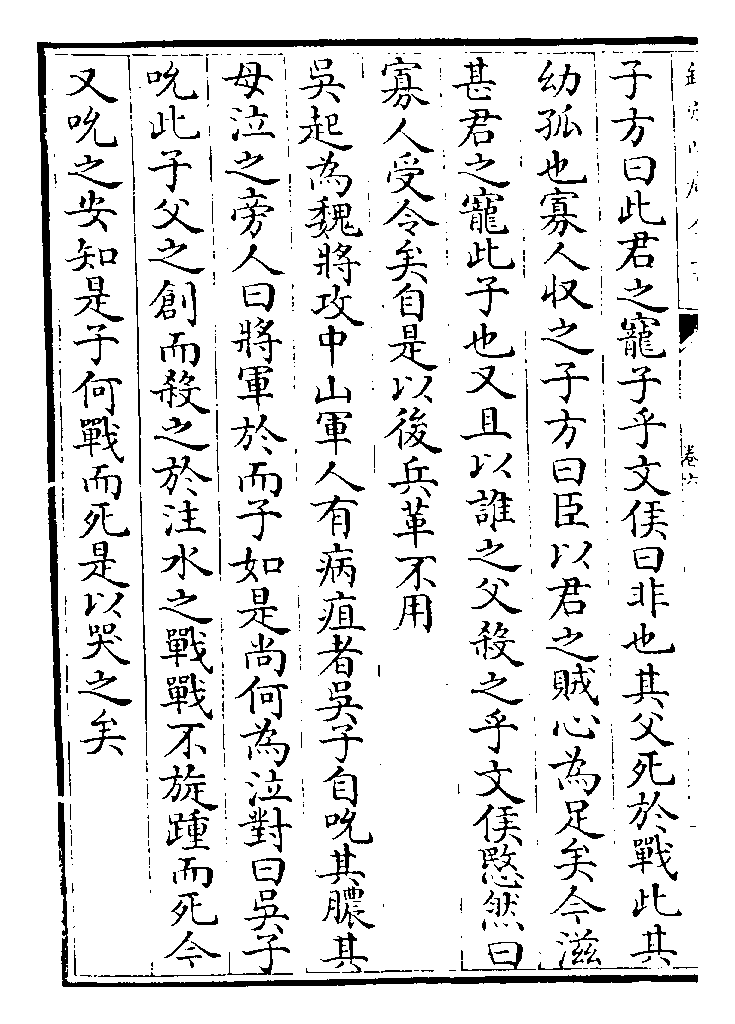 子方曰此君之寵子乎文侯曰非也其父死於戰此其
幼孤也寡人收之子方曰臣以君之賊心為足矣今滋
甚君之寵此子也又且以誰之父殺之乎文侯愍然曰
寡人受令矣自是以後兵革不用
吳起為魏將攻中山軍人有病疽者吳子自吮其膿其
母泣之旁人曰將軍於而子如是尚何為泣對曰吳子
吮此子父之創而殺之於注水之戰戰不旋踵而死今
又吮之安知是子何戰而死是以哭之矣
卷六